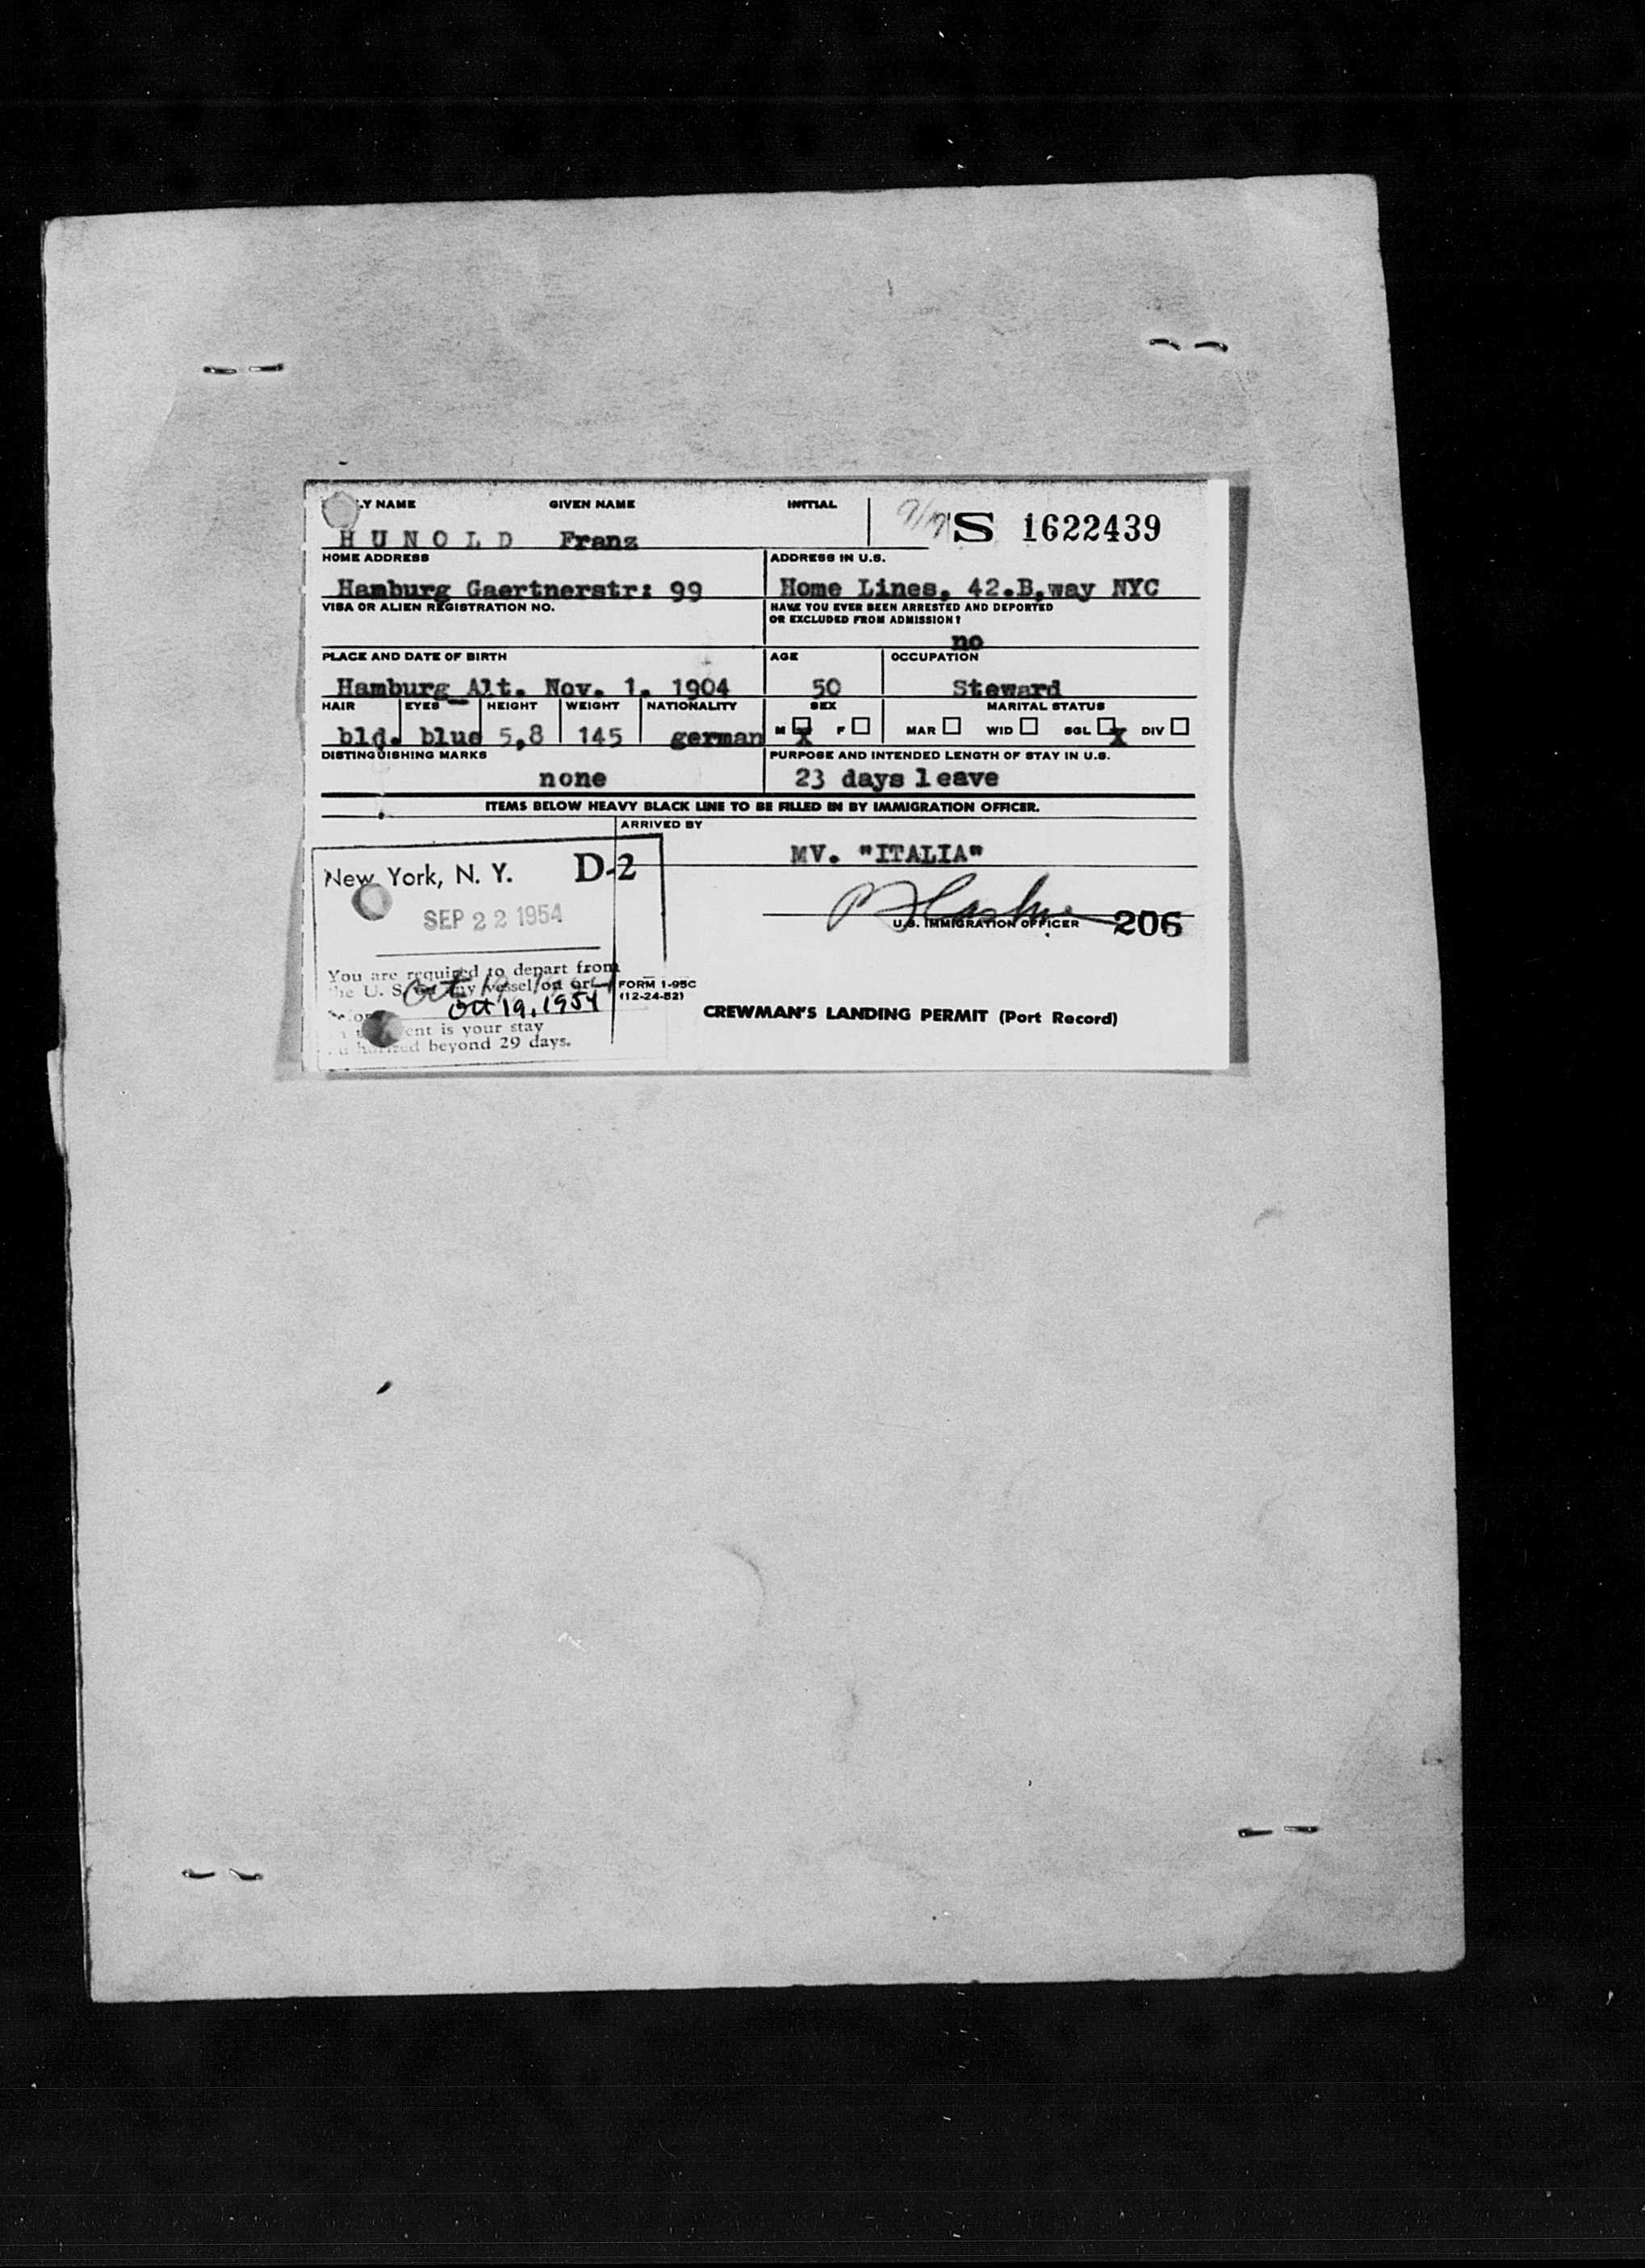 LY NAME GIVEN NAME INITIAL
S 1622439
HUNOLD Franz
HOME ADDRESS ADDRESS IN U.S.
Hamburg Gaertnerstr: 99 Home Lines, 42.B.way NYC
VISA OR ALIEN REGISTRATION NO. HAVE YOU EVER BEEN ARRESTED AND DEPORTED
OR EXCLUDED FROM ADMISSION?
no
PLACE AND DATE OF BIRTH AGE OCCUPATION
Hamburg Alt. Nov. 1. 1904 50 Steward
HAIR EYES HEIGHT WEIGHT NATIONALITY SEX MARITAL STATUS
bld. blue 5,8 145 german M X F MAR WID SGL X DIV
DISTINGUISHING MARKS PURPOSE AND INTENDED LENGTH OF STAY IN U.S.
none 23 days leave
ITEMS BELOW HEAVY BLACK LINE TO BE FILLED IN BY IMMIGRATION OFFICER.
ARRIVED BY
MV. "ITALIA"
New York, N. Y. D-2
SEP 22 1954
U.S. IMMIGRATION OFFICER 206
You are required to depart from
the U. S. on any vessel on or
Oct 19, 1954
ent is your stay
beyond 29 days.
FORM I-95C
(12-24-52)
CREWMAN'S LANDING PERMIT (Port Record)